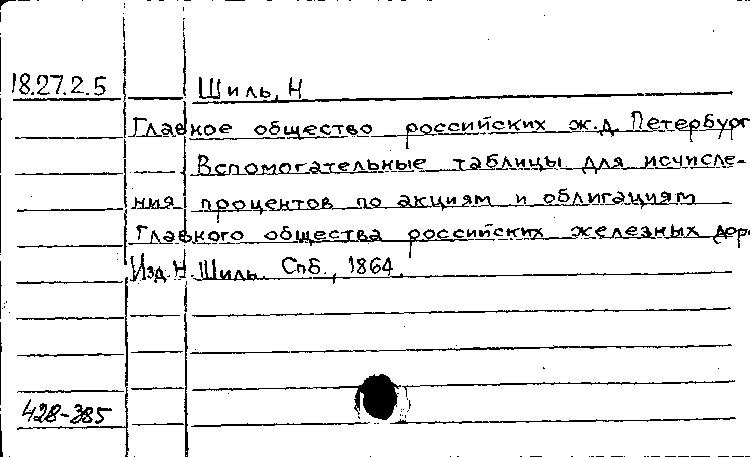 18.27.2.5 Шиль, Н
Главное общество российских ж.д. Петербург
Вспомогательные таблицы для исчисле-
ния процентов по акциям и облигациям
Главного общества российских железных дор.
Изд. Н. Шиль. Спб., 1864.
428-385